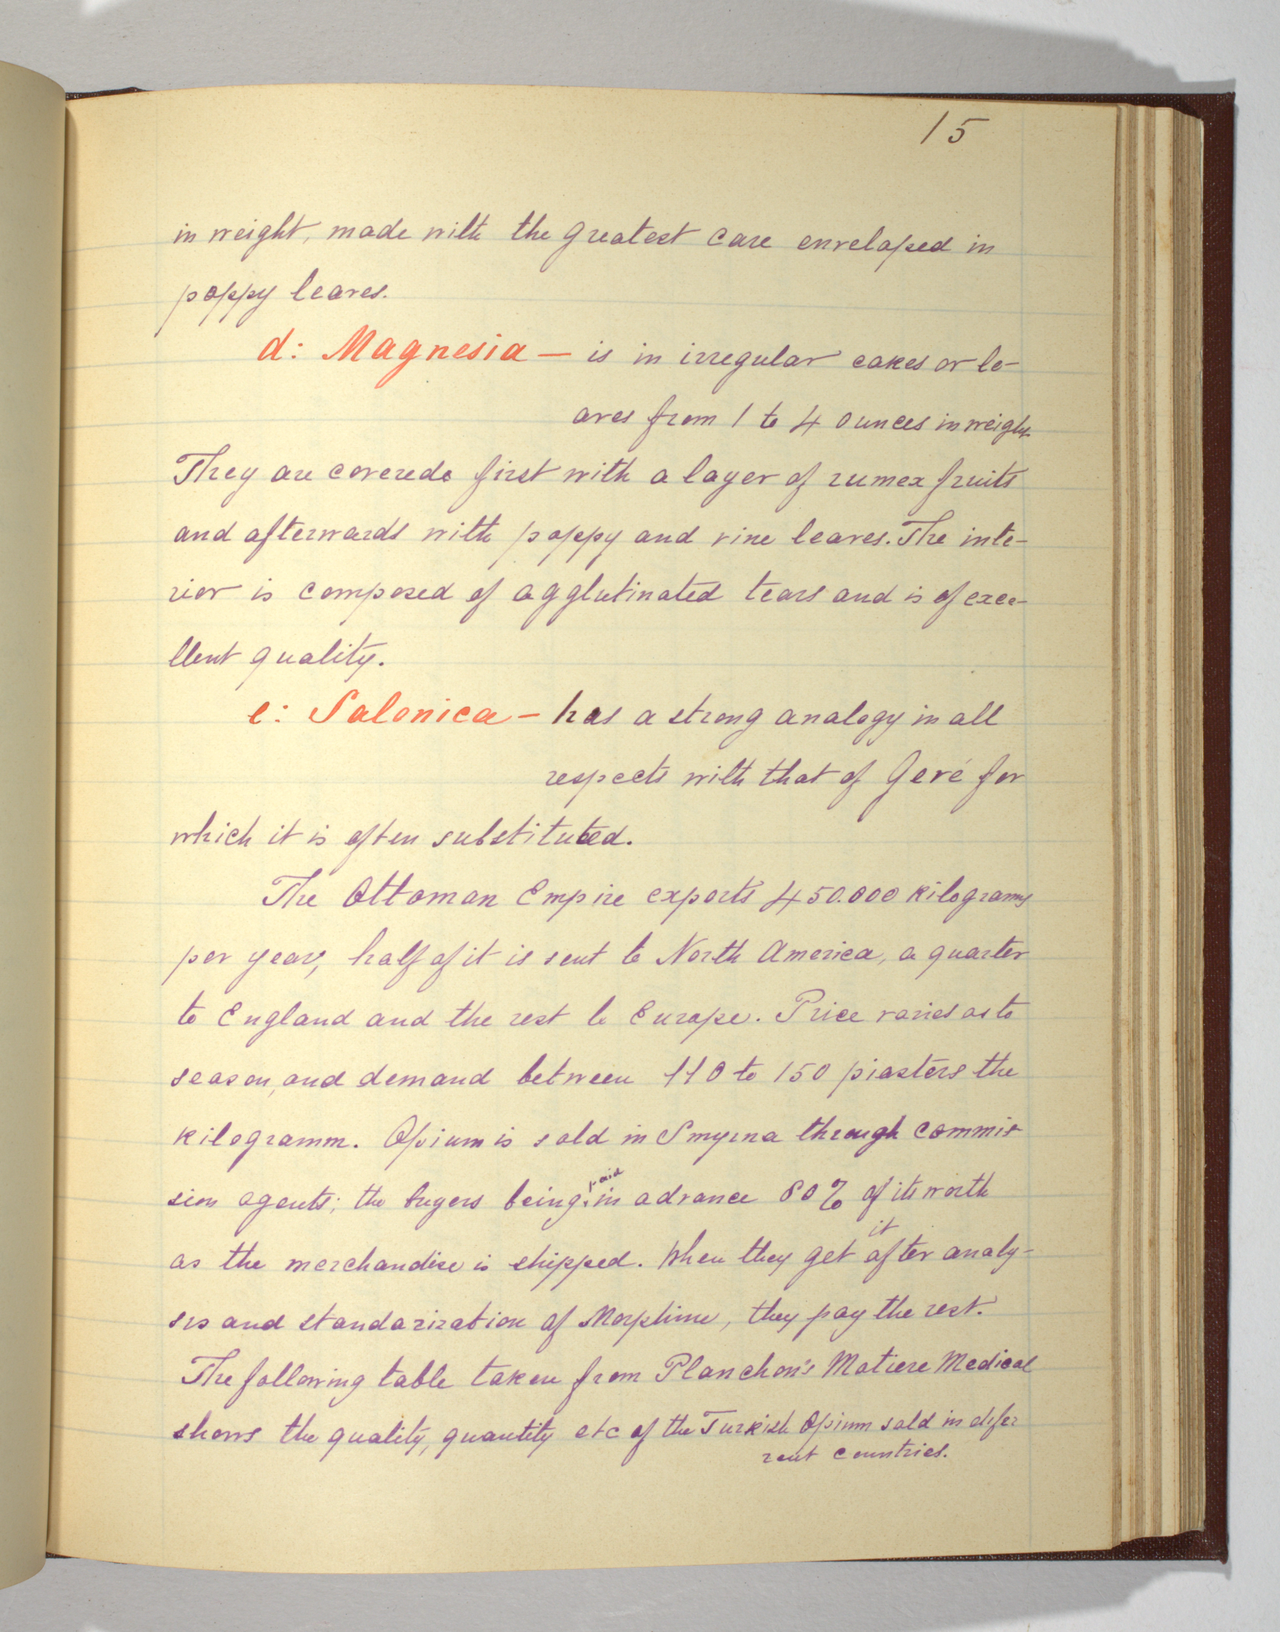 15
in weight, made with the greatest care envelaped in
poppy leaves.
d: Magnesia — is in irregular cakes or lo-
aves from 1 to 4 ounces in weight.
They are coverede first with a layer of rumex fruits
and afterwards with poppy and vine leaves. The inte-
rior is composed of agglutinated tears and is of exce-
llent quality.
e: Salonica — has a strong analogy in all
respects with that of Gevé for
which it is often substituted.
The Ottoman Empire exports 450.000 kilograms
per year, half of it is sent to North America, a quarter
to England and the rest to Europe. Price varies as to
season, and demand between 110 to 150 piasters the
kilogramm. Opium is sold in Smyrna through commis
sion agents; the buyers being paid in advance 80% of its worth
as the merchandise is shipped. When they get it after analy-
sis and standarization of Morphine, they pay the rest.
The following table taken from Planchon's Matiere Medical
shows the quality, quantity etc of the Turkish Opium sold in difer
rent countries.